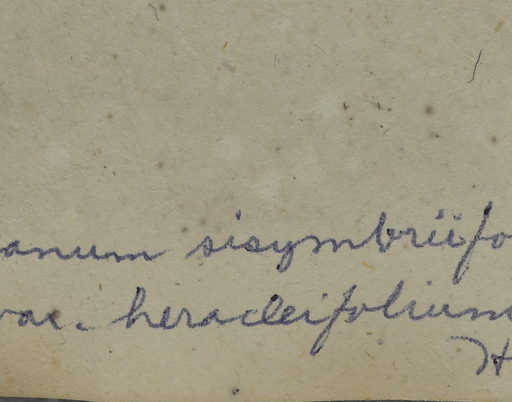 anum sisymbriifo
var. heracleifolium
H